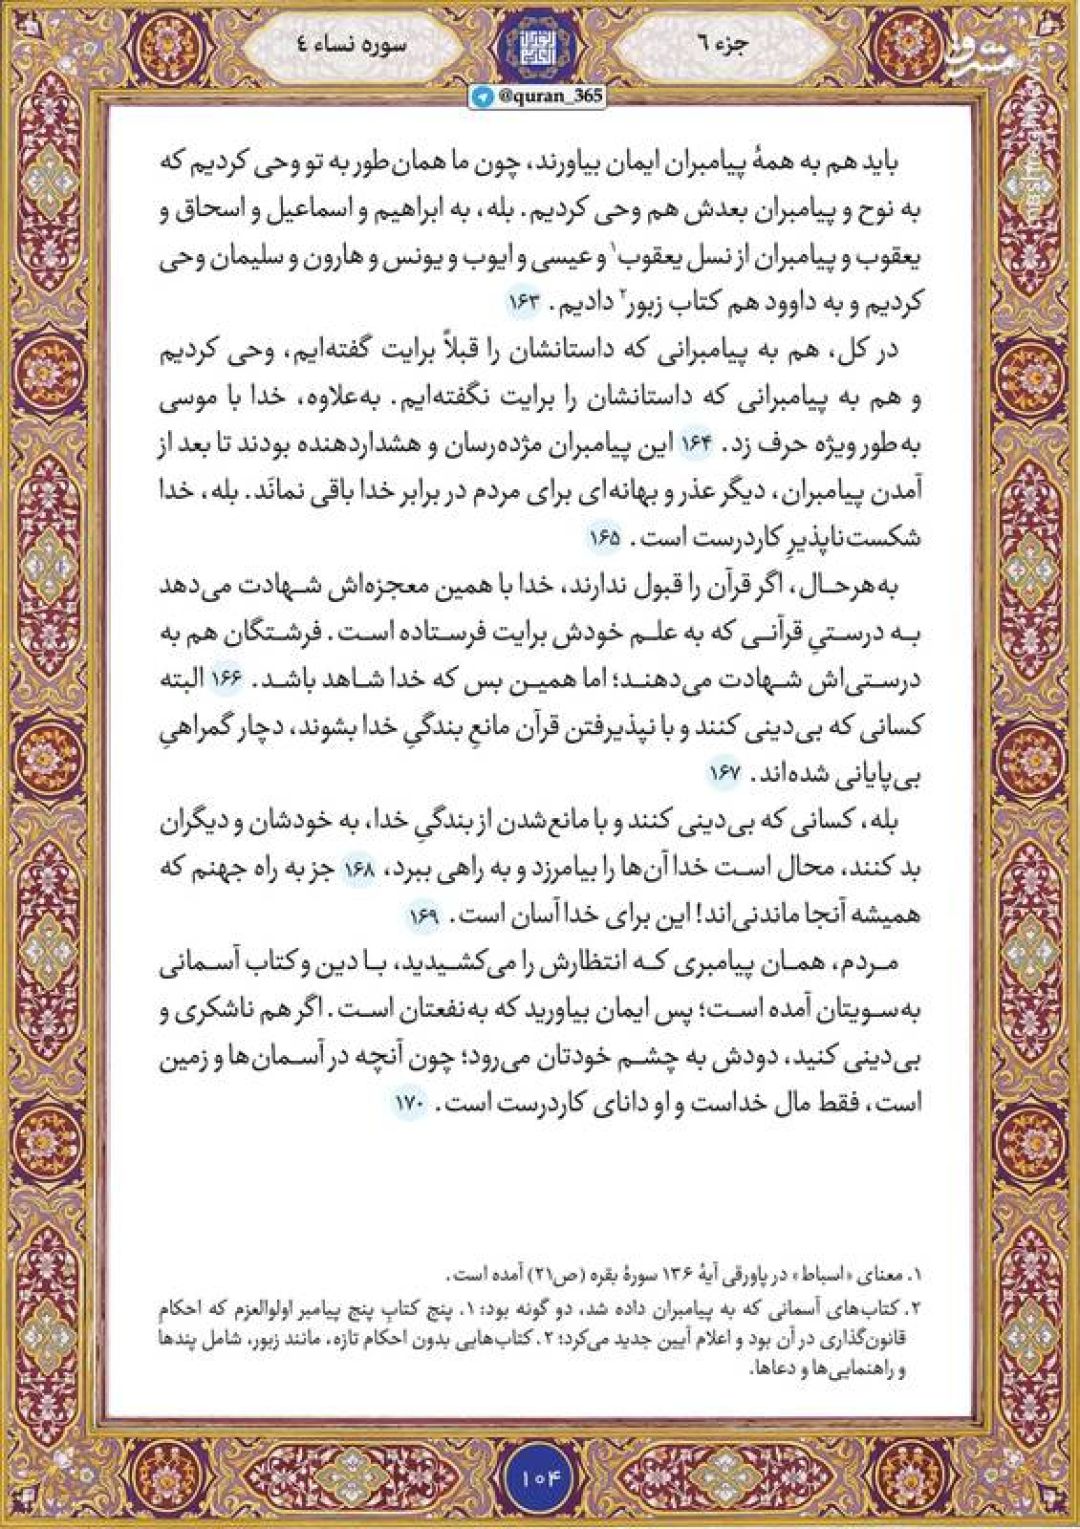 جزء ۶
سوره نساء ٤
مشرق
mashreghnews.ir
@quran_365
باید هم به همهٔ پیامبران ایمان بیاورند، چون ما همان‌طور به تو وحی کردیم که
به نوح و پیامبران بعدش هم وحی کردیم. بله، به ابراهیم و اسماعیل و اسحاق و
یعقوب و پیامبران از نسل یعقوب۱ و عیسی و ایوب و یونس و هارون و سلیمان وحی
کردیم و به داوود هم کتاب زبور۲ دادیم. ۱۶۳
در کل، هم به پیامبرانی که داستانشان را قبلاً برایت گفته‌ایم، وحی کردیم
و هم به پیامبرانی که داستانشان را برایت نگفته‌ایم. به‌علاوه، خدا با موسی
به‌طور ویژه حرف زد. ۱۶۴ این پیامبران مژده‌رسان و هشداردهنده بودند تا بعد از
آمدن پیامبران، دیگر عذر و بهانه‌ای برای مردم در برابر خدا باقی نمانَد. بله، خدا
شکست‌ناپذیرِ کاردرست است. ۱۶۵
به‌هرحال، اگر قرآن را قبول ندارند، خدا با همین معجزه‌اش شهادت می‌دهد
به درستیِ قرآنی که به علم خودش برایت فرستاده است. فرشتگان هم به
درستی‌اش شهادت می‌دهند؛ اما همین بس که خدا شاهد باشد. ۱۶۶ البته
کسانی که بی‌دینی کنند و با نپذیرفتن قرآن مانعِ بندگیِ خدا بشوند، دچار گمراهیِ
بی‌پایانی شده‌اند. ۱۶۷
بله، کسانی که بی‌دینی کنند و با مانع‌شدن از بندگیِ خدا، به خودشان و دیگران
بد کنند، محال است خدا آن‌ها را بیامرزد و به راهی ببرد، ۱۶۸ جز به راه جهنم که
همیشه آنجا ماندنی‌اند! این برای خدا آسان است. ۱۶۹
مردم، همان پیامبری که انتظارش را می‌کشیدید، با دین و کتاب آسمانی
به‌سویتان آمده است؛ پس ایمان بیاورید که به‌نفعتان است. اگر هم ناشکری و
بی‌دینی کنید، دودش به چشم خودتان می‌رود؛ چون آنچه در آسمان‌ها و زمین
است، فقط مال خداست و او دانای کاردرست است. ۱۷۰
۱. معنای «اسباط» در پاورقی آیهٔ ۱۳۶ سورهٔ بقره (ص۲۱) آمده است.
۲. کتاب‌های آسمانی که به پیامبران داده شد، دو گونه بود: ۱. پنج کتابِ پنج پیامبر اولوالعزم که احکامِ
قانون‌گذاری در آن بود و اعلام آیین جدید می‌کرد؛ ۲. کتاب‌هایی بدون احکام تازه، مانند زبور، شامل پندها
و راهنمایی‌ها و دعاها.
۱۰۴